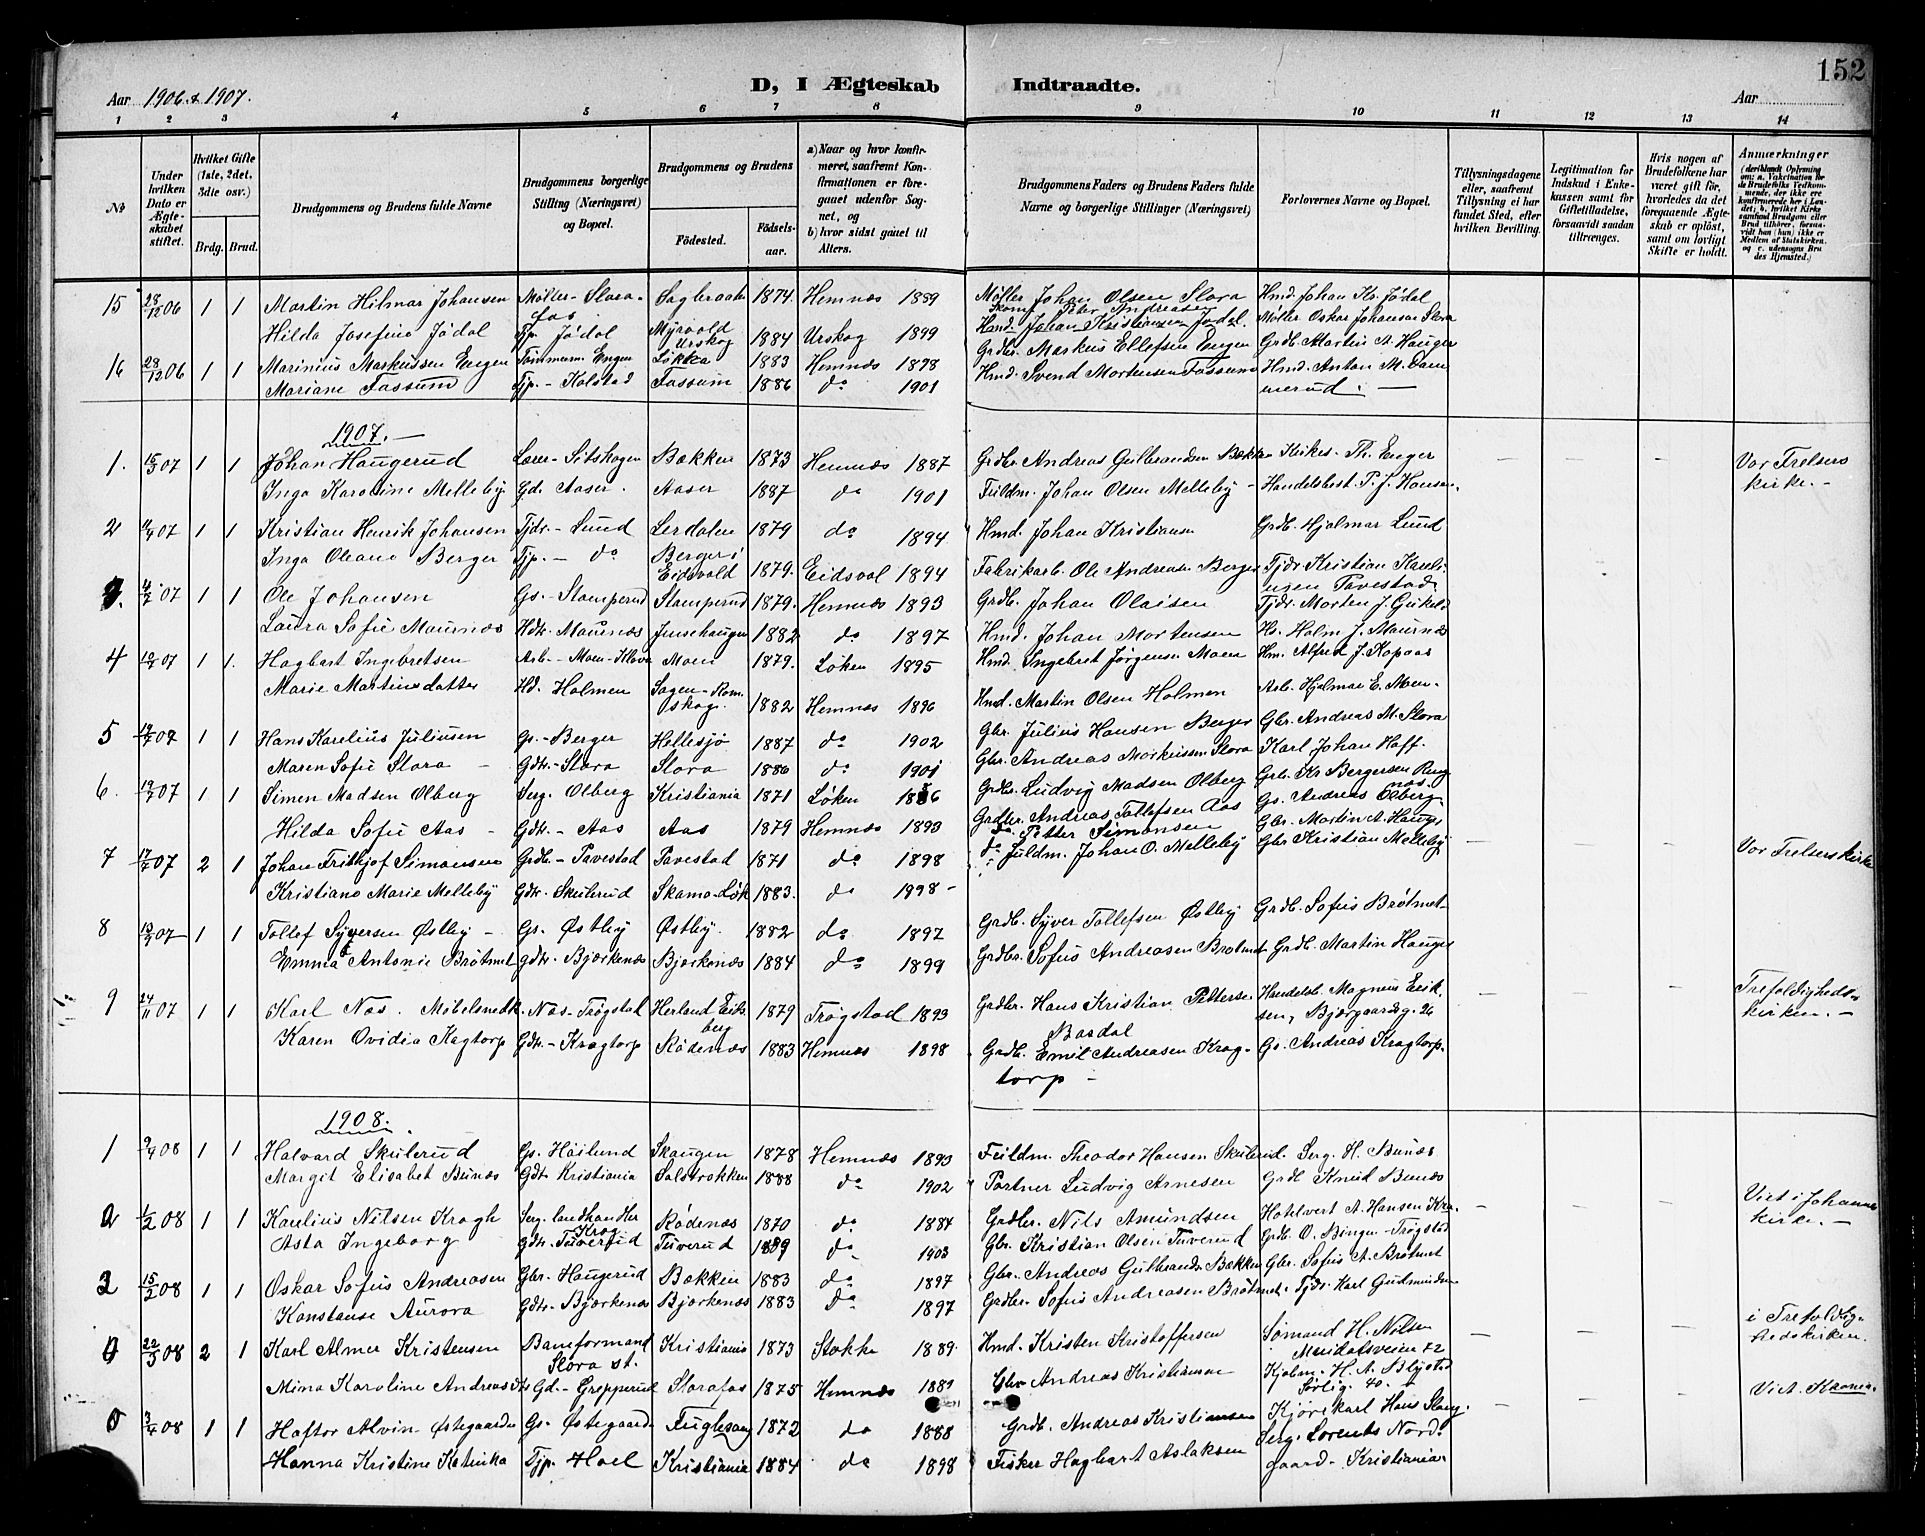 152
D, I Ægteskab Indtraadte.
Aar 1906 & 1907.
Aar
1 2 3 4 5 6 7 8 9 10 11 12 13 14
№
Under hvilken Dato er Ægteskabet stiftet.
Hvilket Gifte (1ste, 2det, 3die osv.)
Brdg. Brud.
Brudgommens og Brudens fulde Navne
Brudgommens borgerlige Stilling (Næringsvei) og Bopæl.
Brudgommens og Brudens
Fødested.
Fødselsaar.
a) Naar og hvor konfirmeret, saafremt Konfirmationen er foregaaet udenfor Sognet, og
b) hvor sidst gaaet til Alters.
Brudgommens Faders og Brudens Faders fulde Navne og borgerlige Stillinger (Næringsvei)
Forlovernes Navne og Bopæl.
Tillysningsdagene eller, saafremt Tillysning ei har fundet Sted, efter hvilken Bevilling.
Legitimation for Indskud i Enkekassen samt for Giftetilladelse, forsaavidt saadan tiltrænges.
Hvis nogen af Brudefolkene har været gift før, hvorledes da det foregaaende Ægteskab er opløst, samt om lovligt Skifte er holdt.
Anmærkninger (deriblandt Oplysning om: a. Vakcination for de Brudefolks Vedkommende, der ikke ere konfirmerede her i Landet; b. hvilket Kirkesamfund Brudgom eller Brud tilhører, forsaavidt han (hun) ikke er Medlem af Statskirken, og c. udensogns Brudes Hjemsted.)
15 28/12 06 1 1 Martin Hilmar Johansen Møller - Slorafos Sagbraaten 1874 Hemnæs 1889 Møller Johan Olsen Slora Hmd. Johan Kr. Jødal
Skomf. Peter Andreasen
Hilda Josefine Jødal Tjp. Jødal Myrvold Urskog 1884 Urskog 1899 Hmd. Johan Kristiansen Jødal. Møller Oskar Johansen Slora
16 28/12 06 1 1 Marinius Markussen Engen Tømmerm. Engen Løkka 1883 Hemnæs 1898 Grdbr. Markus Ellefsen Engen Grdb. Martin A. Hauger
Mariane Fossum Tjp. - Kolstad Fossum 1886 do 1901 Hmd. Svend Mortensen Fossum Hmd. Anton M. Dammerud. —
1907. —
1. 15/3 07 1 1 Johan Haugerud Lærer - Sitshogen Bækken 1873 Hemnæs 1887 Grdbr. Andreas Gulbrandsen Bækken Kirkes. Th. Enger Vor Frelsers kirke. -
Inga Karoline Melleby Gd. Aaser. Aaser 1887 do 1901 Fuldm. Johan Olsen Melleby - Handelsbest. P. J. Hansen.
2 /4 07 1 1 Kristian Henrik Johansen Tjdr. - Lund Lerdalen 1879 do 1894 Hmd. Johan Kristiansen Grdb. Hjalmar Lund
Inga Oleane Berger Tjp. - do Berger i Eidsvold 1879. Eidsvol 1894 Fabrikarb. Ole Andreasen Berger Tjdr. Kristian
3. /7 07 1 1 Ole Johansen Gs. - Stamperud Stamperud 1879. Hemnæs 1893 Grdb. Johan Olaisen Tjdr. Morten J.
Laura Sofie Mournæs Hdtr. Mournæs Junsehaugen 1882 do 1897 Hmd. Johan Mortensen Hs. Holm J. Mournæs
4 07 1 1. Hagbart Ingebretsen Arb. - Moen - Moen 1879. Løken 1895 Hmd. Ingebret Jørgensen Moen Hm. Alfred J. Kopaas
Marie Martinsdatter Hd. Holmen Sagen - Romskog. 1882 Hemnæs 1896 Hmd. Martin Olsen Holmen Arb. Hjalmar E. Moen.
5 07 1 1 Hans Karelius Juliusen Gs. - Berger Hellesjø 1887 do 1902 Gbr. Julius Hansen Berger Gbr. Andreas M. Slora
Maren Sofie Slora - Gdtr. - Slora Slora 1886 do 1901 Gbr. Andreas Markussen Slora Karl Johan Hoff.
6. 07 1 1 Simen Madsen Olberg Serg. Olberg Kristiania 1871 Løken 1886 Grdbr. Ludvig Madsen Olberg Grb. Kr. Bergersen
Gs. Andreas Olberg
Hilda Sofie Aas - Gdtr. - Aas Aas 1879 Hemnæs 1893 Grdbr. Andreas Tollefsen Aas Gbr. Martin A. Hauger
7 17/ 07 2 1 Johan Frithjof Simonsen Grdb. - Tavestad Tavestad 1871 do 1898 do Petter Simonsen Gbr. Kristian Melleby Vor Frelsers kirke
Kristiane Marie Melleby Gdtr. Skulerud Skamo - Løk 1883. do 1898 - Fuldm. Johan O. Melleby
8 07 1 1 Tollef Syversen Østby - Gs. Østby Østby. 1882 do 1897 Grdb. Syver Tollefsen Østby Grdb. Sofus Brøtmet
Emma Antonie Brøtmet Gdtr. Bjørkenæs Bjørkenæs 1884 do 1899 Grdbr. Sofus Andreasen Brøtmet Grdb. Martin Hauger
9 24/11 07 1 1 Karl Næs. Møbelsnedk. Næs - Trøgstad Herland Eidsberg 1879 Trøgstad 1893 Grdbr. Hans Kristian Pettersen Basdal Handelsb. Magnus Eriksen, Bjergaardsg. 26 Trefoldighedskirken. -
Karen Ovidia Kragtorp Gdtr. - Kragtorp Rødenæs 1883 Hemnæs 1898 Grdb. Emil Andreasen Kragtorp - Gs. Andreas Kragtorp.
1908.
1 9/4 08 1 1 Halvard Skulerud Gs. Høilund Skaugen 1878 Hemnæs 1893 Fuldm. Theodor Hansen Skulerud. Serg. H. Bunæs
Margit Elisabet Bunæs Gdt. Kristiania Solstrokken 1888 do 1902 Portner Ludvig Arnesen Grdb. Knud Bunæs
2 1/2 08 1 1 Karelius Nilsen Kragh Serg. landhandler Krog Rødenæs 1870 do 1884 Grdbr. Nils Amundsen Hotelvert A. Hansen Viet i Johannes kirke. -
Asta Ingeborg Gdtr. Tuverud Tuverud 1889 do 1903 Gbr. Kristian Olsen Tuverud Grdb. O. Bingen - Trøgstad
3 15/2 08 1 1 Oskar Sofus Andreasen Gbr. Haugerud Bækken 1883 do 1897 Gbr. Andreas Gulbrands. Bækken Gbr. Sofus A. Brøtmet
Konstanse Aurora Gdtr. Bjørkenæs Bjørkenæs 1883 do 1897 Grdbr. Sofus Andreasen Brøtmet. Tjdr. Karl Gudmundsen
22/3 08 2 1 Karl Almer Kristensen Baneformand Slora st. Kristiania 1873 Stokke 1889. Hmd. Kristen Kristoffersen Sømand H. Nilsen 72 i Trefoldighedskirken.
Mina Karoline Andreasdtr Gd. - Grepperud Slorafos 1875 Hemnæs 1889 Gbr. Andreas Kristiansen Kjøbm. H. A. 40. Viet.
3/4 08 1 1 Haftor Alvin Østegaarden Gs. Østegaarden Fuglesang 1872 do 1888 Grdb. Andreas Kristiansen Kjørekarl Hans
Hanna Kristine Katinka Tjp. Hoel Kristiania 1884 do 1898 Fisker Hagbart Aslaksen Serg. Lorents Nordgaard - Kristiania